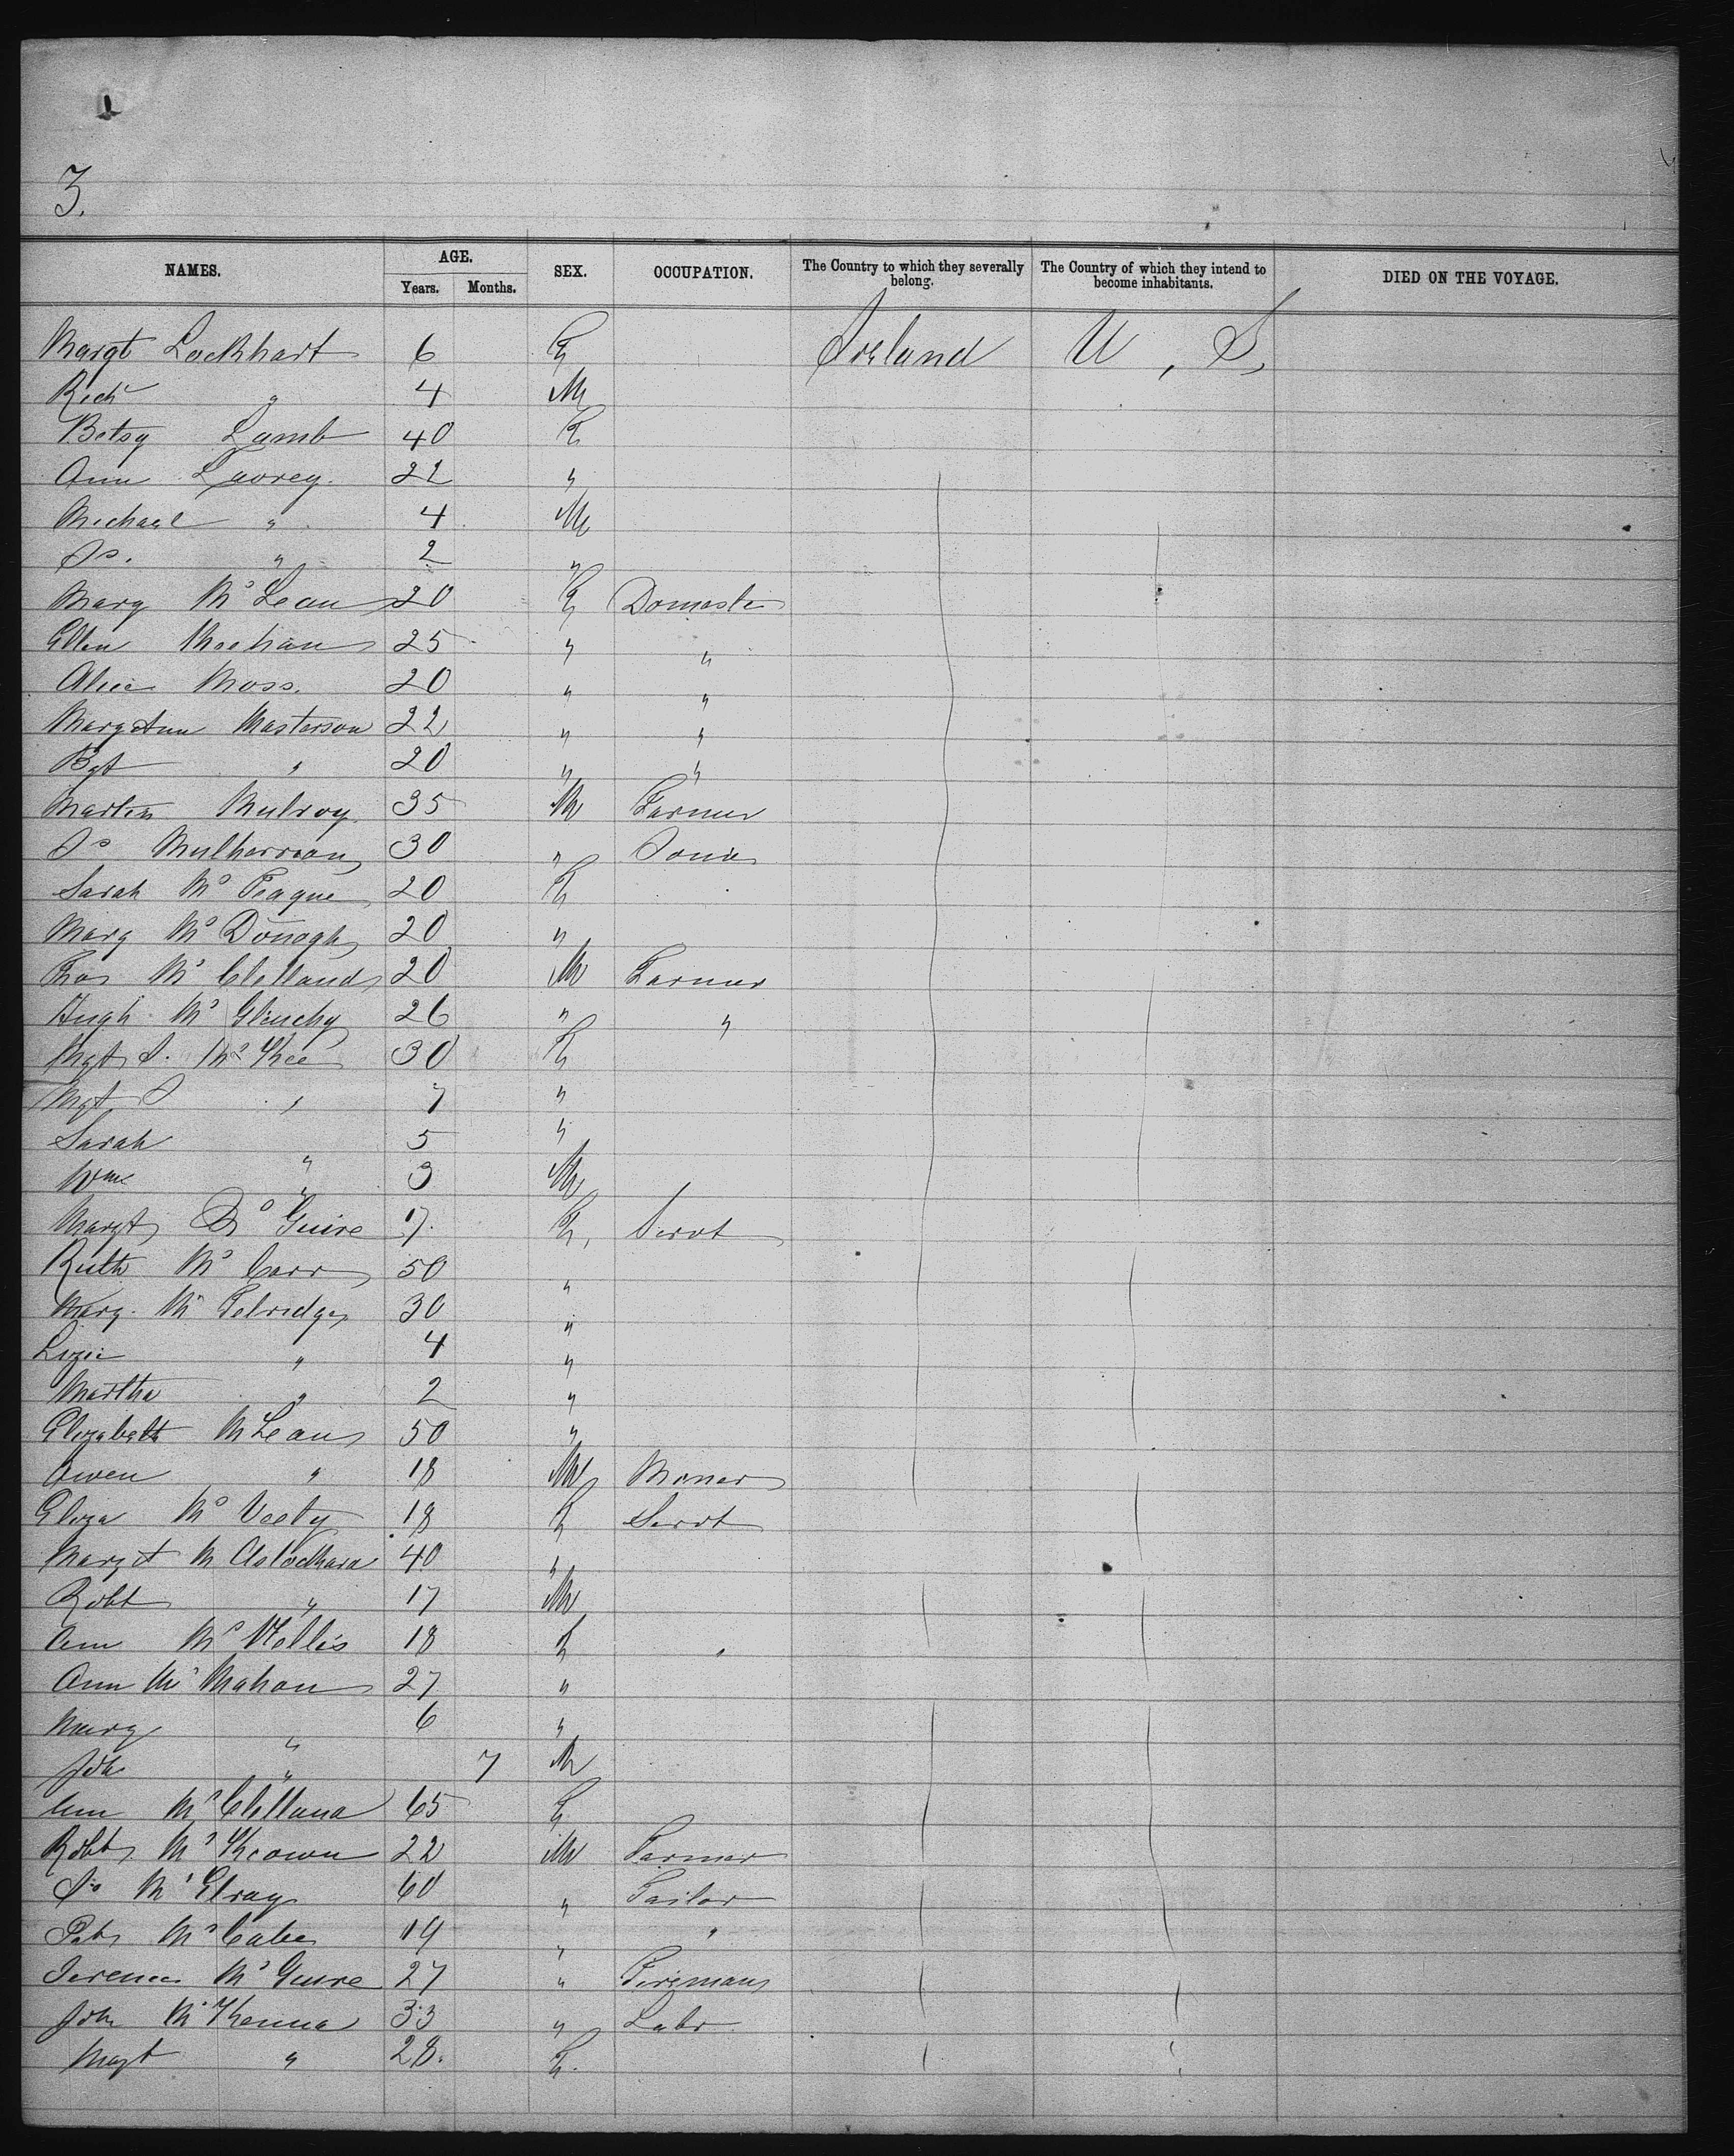 3.
NAMES. AGE. Years. Months. SEX. OCCUPATION. The Country to which they severally belong. The Country of which they intend to become inhabitants. DIED ON THE VOYAGE.
Margt Lockhart 6 F Ireland U, S,
Richd " 4 M
Betsy Lamb 40 F
Ann Lavrey. 22 "
Michael " 4 M
Js. " 2 "
Mary McLean 20 F Domestc
Ellen Meehan 25 " "
Alice Moss. 20 " "
Mary Ann Masterson 22 " "
Bgt " 20 " "
Martin Mulroy 35 M Farmer
Js Mulherran 30 "
Sarah McTeague 20 F
Mary McDonagh 20 "
Thos McClelland 20 M Farmer
Hugh McGlinchy 26 " "
Mgt J. McKee 30 F
Mgt J " 7 "
Sarah " 5 "
Wm " 3 M
Margt McGuire 17. F, Servt
Ruth McCarr 50 "
Mary. Mc 30 "
Lizie " 4 "
Martha " 2 "
Elizabeth McLean 50 "
Owen " 18 M Miner
Eliza Mc 18 F Servt
Margt M 40 "
Robt " 17 M
Ann Mc 18 F "
Ann McMahon 27 "
Mary " 6 "
Jdn " 7 M
Ann McClelland 65 F
Robt McKeown 22 M Farmer
Js McElray 60 " Tailor
Pat McCabe 19 " "
Terence McGuire 27 " Fireman
John McKenna 33 " Labr
Mgt " 28. F.